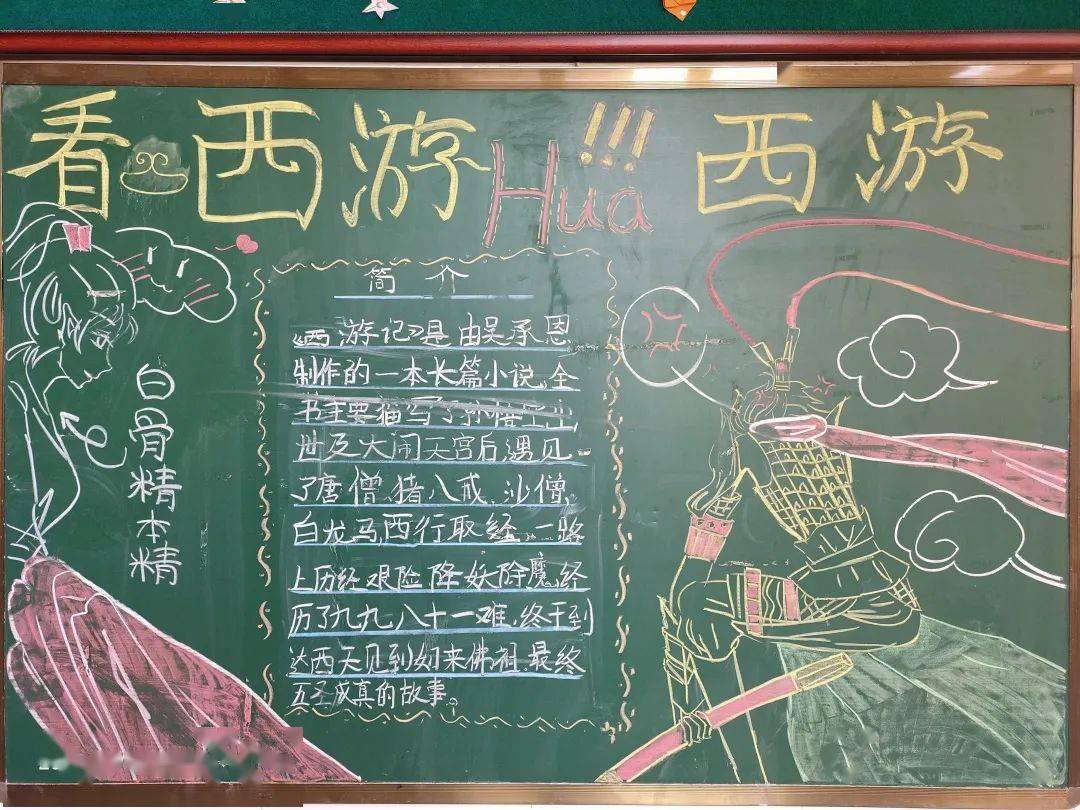 看西游Hua!!!西游
简介
《西游记》是由吴承恩
制作的一本长篇小说。全
书主要描写了孙悟空出
世及大闹天宫后,遇见
了唐僧、猪八戒、沙僧、
白龙马,西行取经,一路
上历经艰险降妖除魔,经
历了九九八十一难,终于到
达西天见到如来佛祖,最终
五圣成真的故事。
白骨精本精